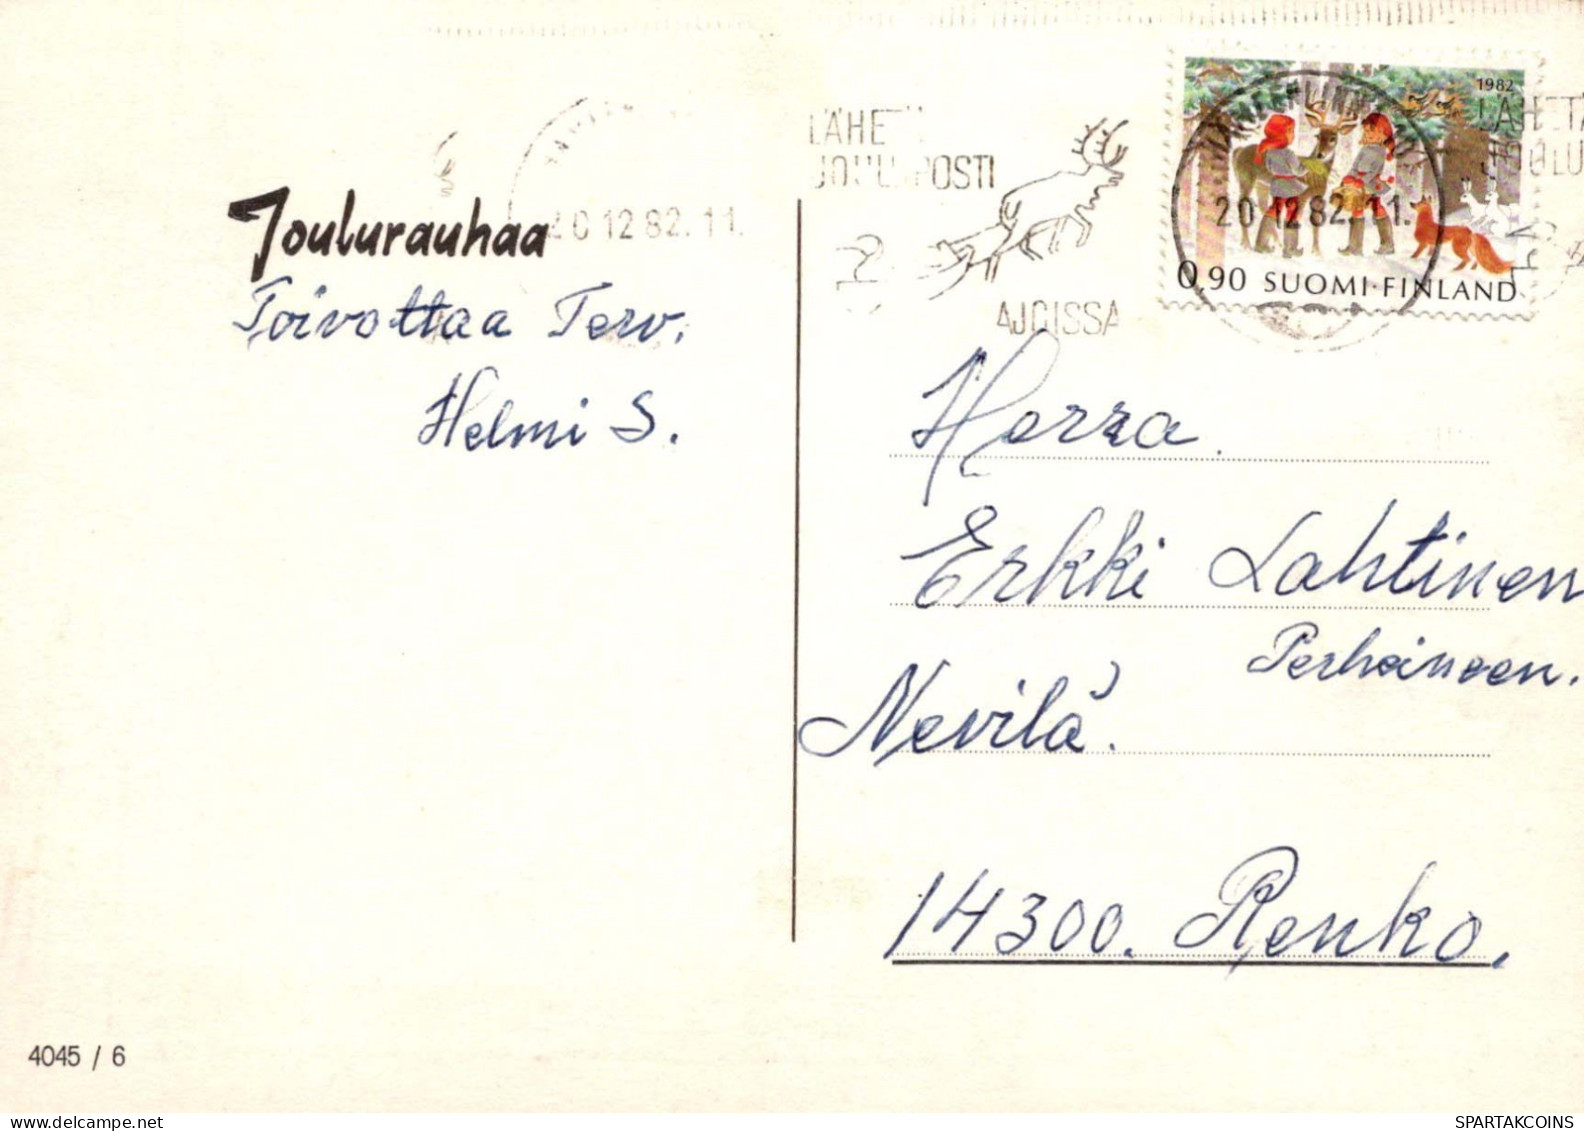 LÄHE
JOULUPOSTI
AJOISSA
1982
LÄHETÄ
JOULU
20.12.82.11.
0,90 SUOMI·FINLAND
20.12.82.11.
Joulurauhaa
Toivottaa Terv.
Helmi S.
Herra
Erkki Lahtinen
Perheineen.
Nevilä.
14300. Renko.
4045 / 6
SPARTAKCOINS